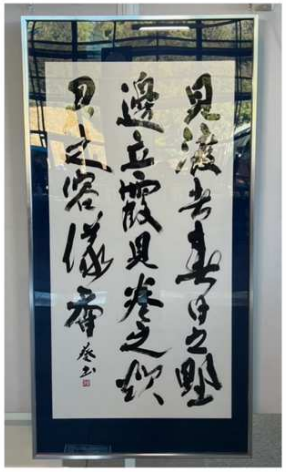 見渡者春日之野
邊立霞見巻之欲
君之容儀香
葵書